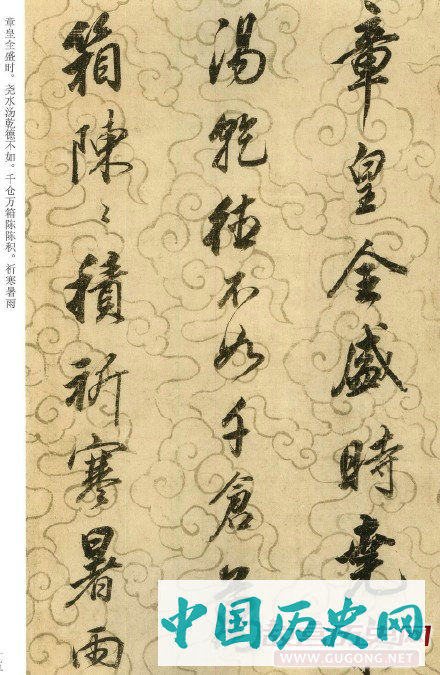 章皇全盛時堯
湯乾德不如千倉
箱陳〻積祈寒暑雨
章皇全盛时。尧水汤乾德不如。千仓万箱陈陈积。祈寒暑雨
中国历史网
WWW.GUGONG.NET